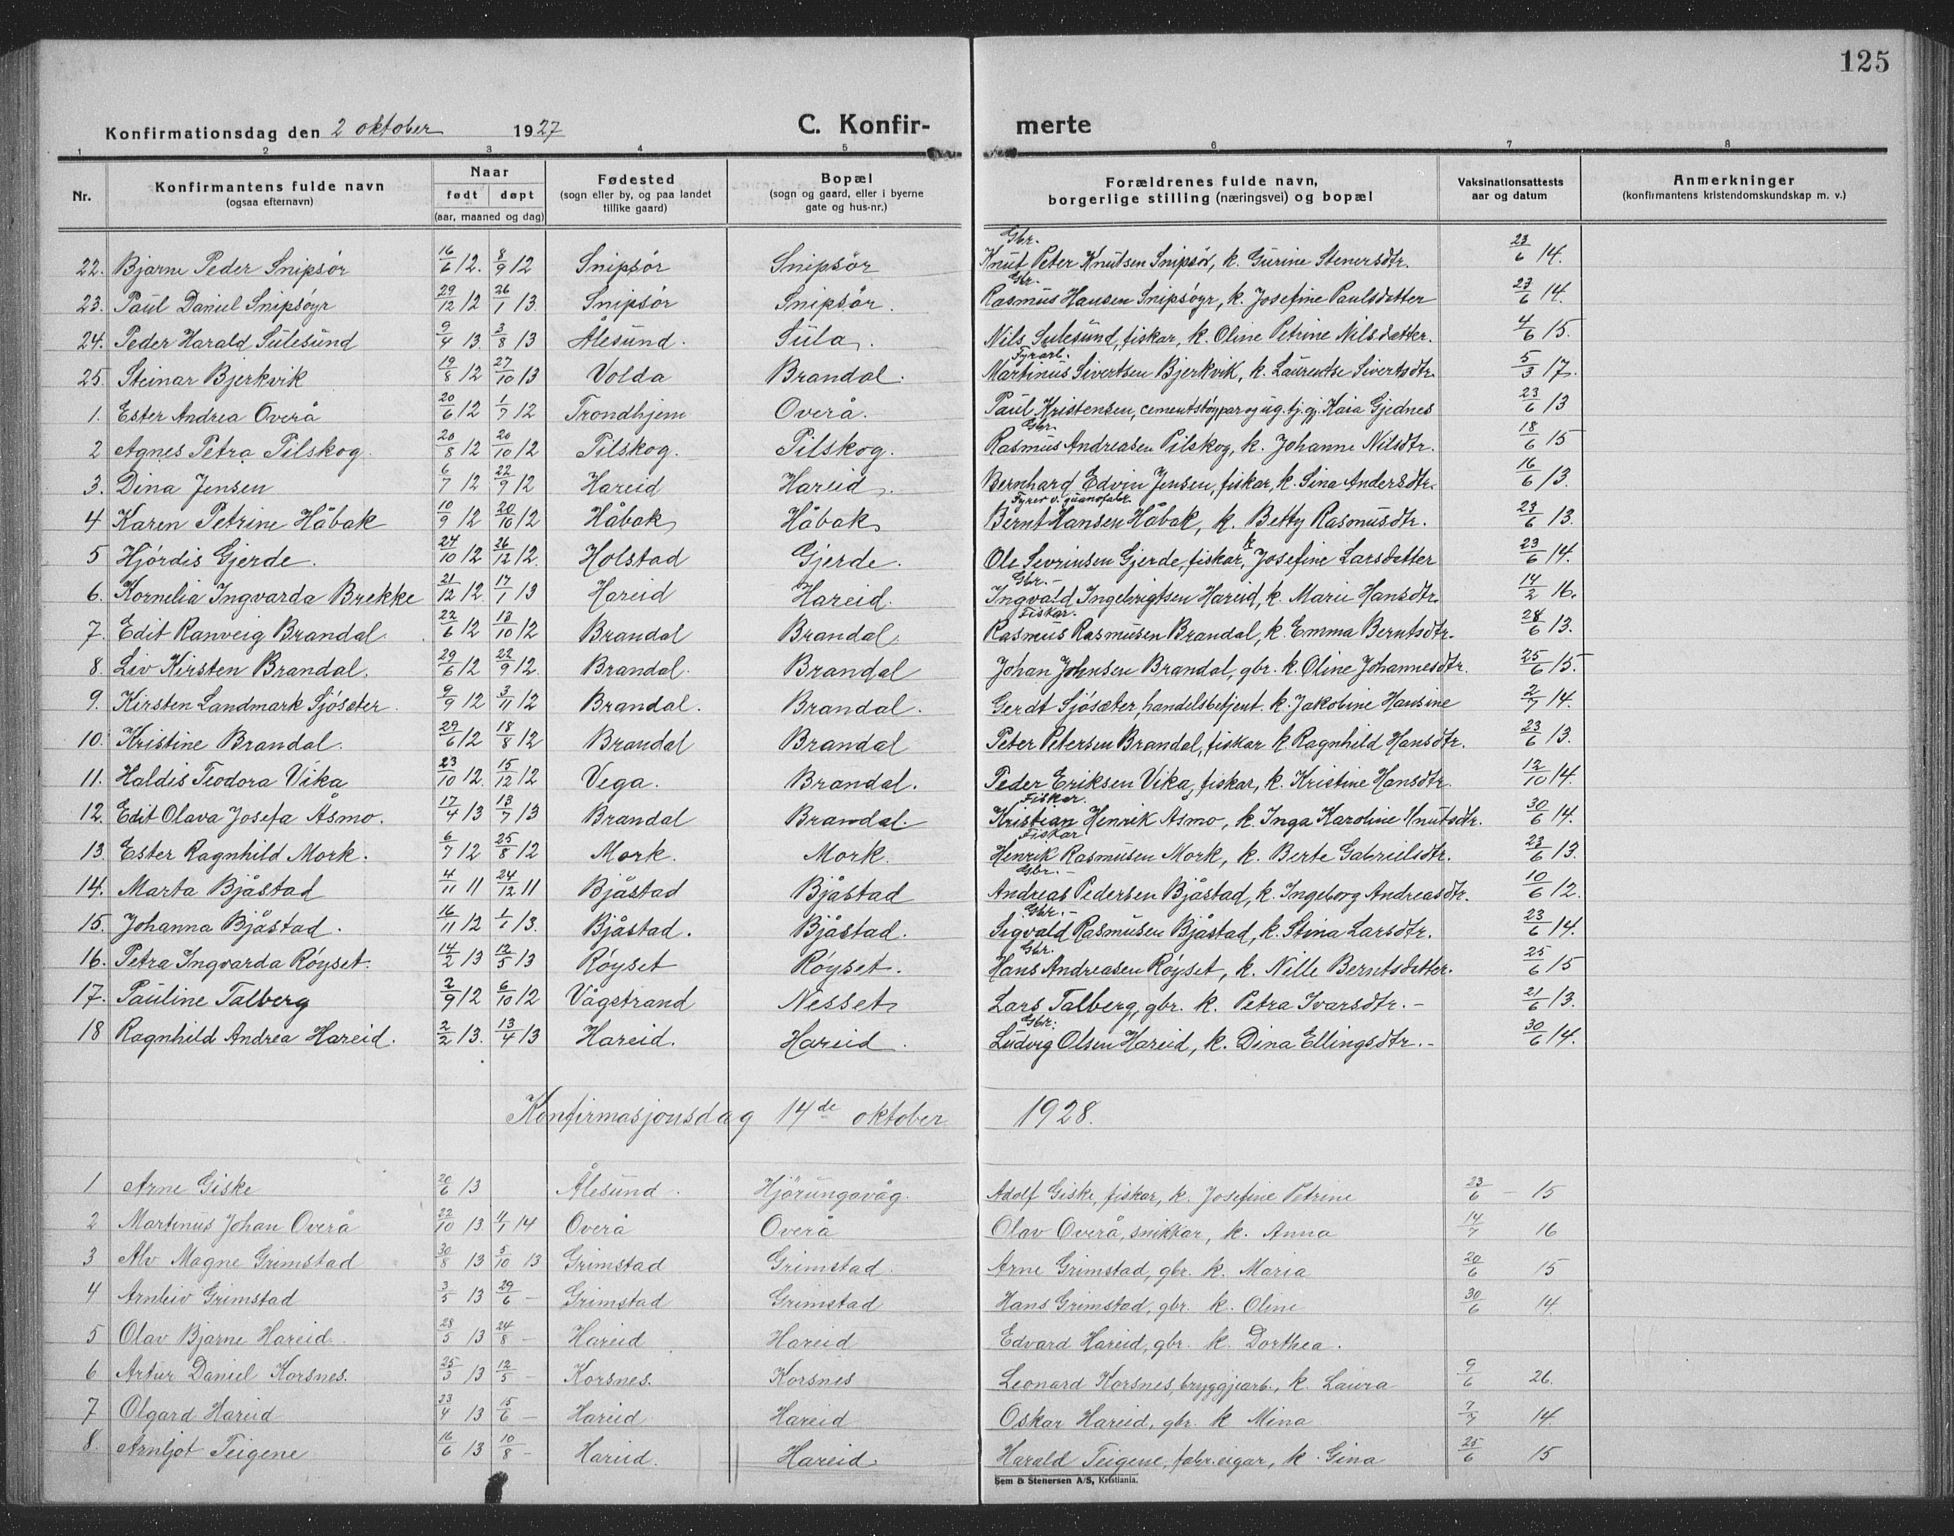 125
Konfirmationsdag den 2 oktober 1927 C. Konfir- merte
1 2 3 4 5 6 7 8
Nr. Konfirmantens fulde navn (ogsaa efternavn) Naar født døpt (aar, maaned og dag) Fødested (sogn eller by, og paa landet tillike gaard) Bopæl (sogn og gaard, eller i byerne gate og hus-nr.) Forældrenes fulde navn, borgerlige stilling (næringsvei) og bopæl Vaksinationsattests aar og datum Anmerkninger (konfirmantens kristendomskundskap m. v.)
22. Bjarne Peder Snipsör 16/6 12. 8/9 12 Snipsör Snipsör Gbr. Knut Peter Knutsen Snipsör, k. Gurine Stenersdtr. 23/6 14.
23. Paul Daniel Snipsöyr 29/12 12 26/1 13. Snipsör Snipsör. Gbr. Rasmus Hansen Snipsöyr, k. Josefine Paulsdatter 23/6 14.
24. Peder Harald Sulesund 9/4 13. 3/8 13 Ålesund. Sula. Nils Sulesund, fiskar, k. Oline Petrine Nilsdatter. 4/6 15.
25. Steinar Bjerkvik 19/8 12 27/10 13 Volda Brandal. Fyrarb. Martinus Sivertsen Bjerkvik, k. Laurentse Sivertsdtr. 5/3 17.
1. Ester Andrea Overå 20/6 12 1/7 12 Trondhjem Overå. Paul Kristensen, cementstöypar og ug. tj. gj. Kaia Gjednes 23/6 13
2 Agnes Petra Pilskog. 20/8 12 20/10 12 Pilskog. Pilskog. Gbr. Rasmus Andreasen Pilskog, k. Johanne Nilsdtr. 18/6 15
3. Dina Jensen 6/7 12 22/9 12 Hareid Hareid. Bernhard Edvin Jensen, fiskar, k. Sina Andersdtr. 16/6 13.
4 Karen Petrine Håbak 10/9 12 20/10 12 Håbak Håbak Fyrer v. guanofabr. Bernt Hansen Håbak, k. Betty Rasmusdtr. 23/6 13.
5 Hjördis Gjerde. 24/10 12 26/12 12. Holstad Gjerde. Ole Sevrinsen Gjerde, fiskar, k Josefine Larsdatter 23/6 14.
6. Kornelia Ingvarda Brekke 21/12 12. 17/1 13 Hareid Hareid. Gbr. - Ingvald Ingebrigtsen Hareid, k. Marie Hansdtr. 14/2 16.
7. Edit Ranveig Brandal. 22/6 12 13/10 12 Brandal Brandal. Fiskar. Rasmus Rasmusen Brandal, k. Emma Berntsdtr. 28/6 13.
8. Liv Kirsten Brandal. 29/6 12 22/9 12. Brandal. Brandal Johan Johnsen Brandal, gbr. k. Oline Johannesdtr. 25/6 15.
9. Kirsten Landmark Sjösæter. 9/9 12 3/11 12 Brandal. Brandal. Gerdt Sjösæter, handelsbetjent. k. Jakobine Hansine 2/7 14.
10. Kristine Brandal. 29/6 12 18/8 12 Brandal Brandal Peter Petersen Brandal, fiskar k. Ragnhild Hansdtr. 23/6 13.
11. Haldis Teodora Vika 23/10 12. 15/12 12 Vega. Brandal. Peder Eriksen Vika, fiskar, k. Kristine Hansdtr. 12/10 14.
12. Edit Olava Josefa Åsmo. 17/4 13 13/7 13 Brandal Brandal. Fiskar. Kristian Henrik Åsmo, k. Inga Karoline Knutsdtr. 30/6 14.
13. Ester Ragnhild Mork. 6/7 12 25/8 12 Mork. Mork. Fiskar Henrik Rasmusen Mork, k. Berte Gabrielsdtr. 23/6 13.
14. Marta Bjåstad 4/11 11 24/12 11 Bjåstad Bjåstad Gbr. - Andreas Pedersen Bjåstad, k. Ingeborg Andreasdtr. 10/6 12.
15. Johanna Bjåstad. 16/11 12 1/1 13. Bjåstad. Bjåstad. Gbr. - Sigvald Rasmusen Bjåstad, k. Stina Larsdtr. 23/6 14.
16. Petra Ingvarda Röyset. 14/2 13 12/5 13 Röyset Röyset. Gbr. Hans Andreasen Röyset, k. Nille Berntsdatter. 25/6 15
17. Pauline Talberg 2/9 12 6/10 12 Vågstrand Nesset Lars Talberg, gbr. k. Petra Ivarsdtr. - 21/6 13.
18 Ragnhild Andrea Hareid. 2/2 13. 13/4 13 Hareid. Hareid. Gbr. Ludvig Olsen Hareid, k. Dina Ellingsdtr. - 30/6 14.
Konfirmasjonsdag 14de oktober 1928.
1 Arne Giske 20/6 13 Ålesund. Hjörungavåg. Adolf Giske, fiskar, k. Josefine Petrine 23/6 - 15
2 Martinus Johan Overå 22/10 13 4/1 14 Overå Overå Olav Overå, snikkar, k. Anna 14/7 16
3 Alv Magne Grimstad 30/8 13 5/10 13 Grimstad Grimstad. Arne Grimstad, gbr. k. Maria 20/6 15
4 Arnleiv Grimstad 3/5 13 29/6 - Grimstad Grimstad Hans Grimstad, gbr. k. Oline 30/6 14.
5 Olav Bjarne Hareid. 28/5 13 24/8 - Hareid Hareid Edvard Hareid, gbr. k. Dorthea.
6 Artur Daniel Korsnes. 25/3 13 12/5 - Korsnes. Korsnes Leonard Korsnes, bryggjearb., k. Laura 9/6 26.
7 Olgard Hareid 23/4 13 15/6 - Hareid Hareid Oskar Hareid, gbr. k Mina 7/7 14.
8. Arnljot Teigene 16/6 13 10/8 - Hareid. Hareid. Harald Teigene, fabr.eigar, k. Gina 25/6 15
Sem & Stenersen A/S, Kristiania.